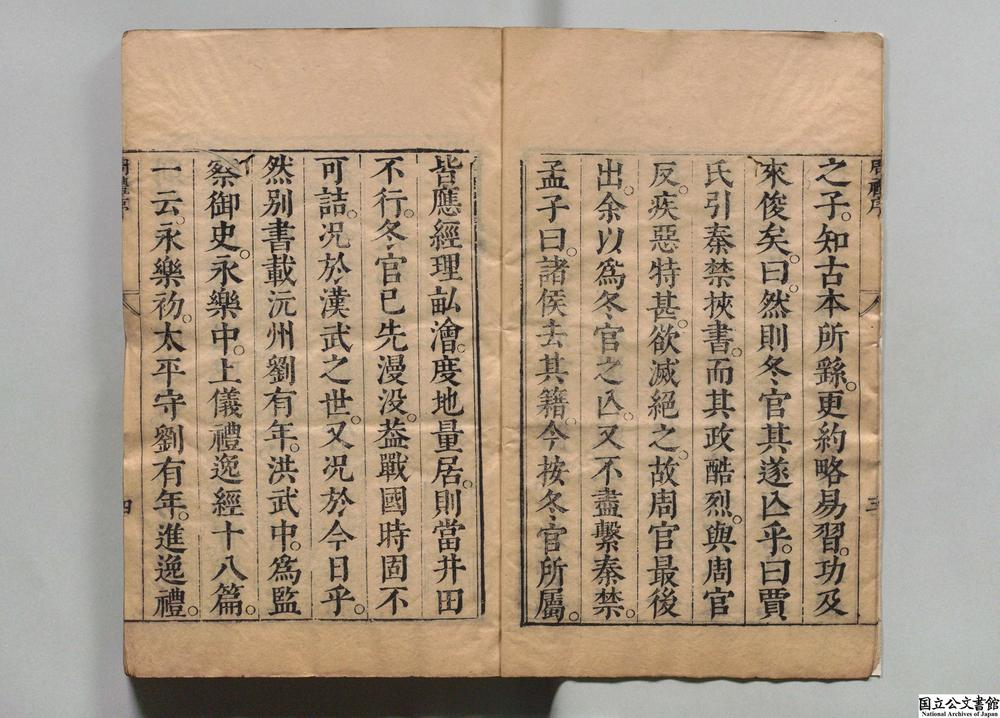 之子。知古本所繇。更約略易習。功及
來俊矣。曰。然則冬官其遂亾乎。曰賈
氏引秦禁挾書。而其政酷烈。與周官
反。疾惡特甚。欲滅絕之。故周官最後
出。余以爲冬官之亾。又不盡繫秦禁。
孟子曰。諸侯去其籍。今按冬官所屬。
皆應經理畆澮。度地量居。則當井田
不行。冬官已先漫没。葢戰國時固不
可詰。况於漢武之世。又况於今日乎。
然別書載沅州劉有年。洪武中。爲監
察御史。永樂中。上儀禮逸經十八篇。
一云。永樂初。太平守劉有年。進逸禮。
四
国立公文書館
National Archives of Japan